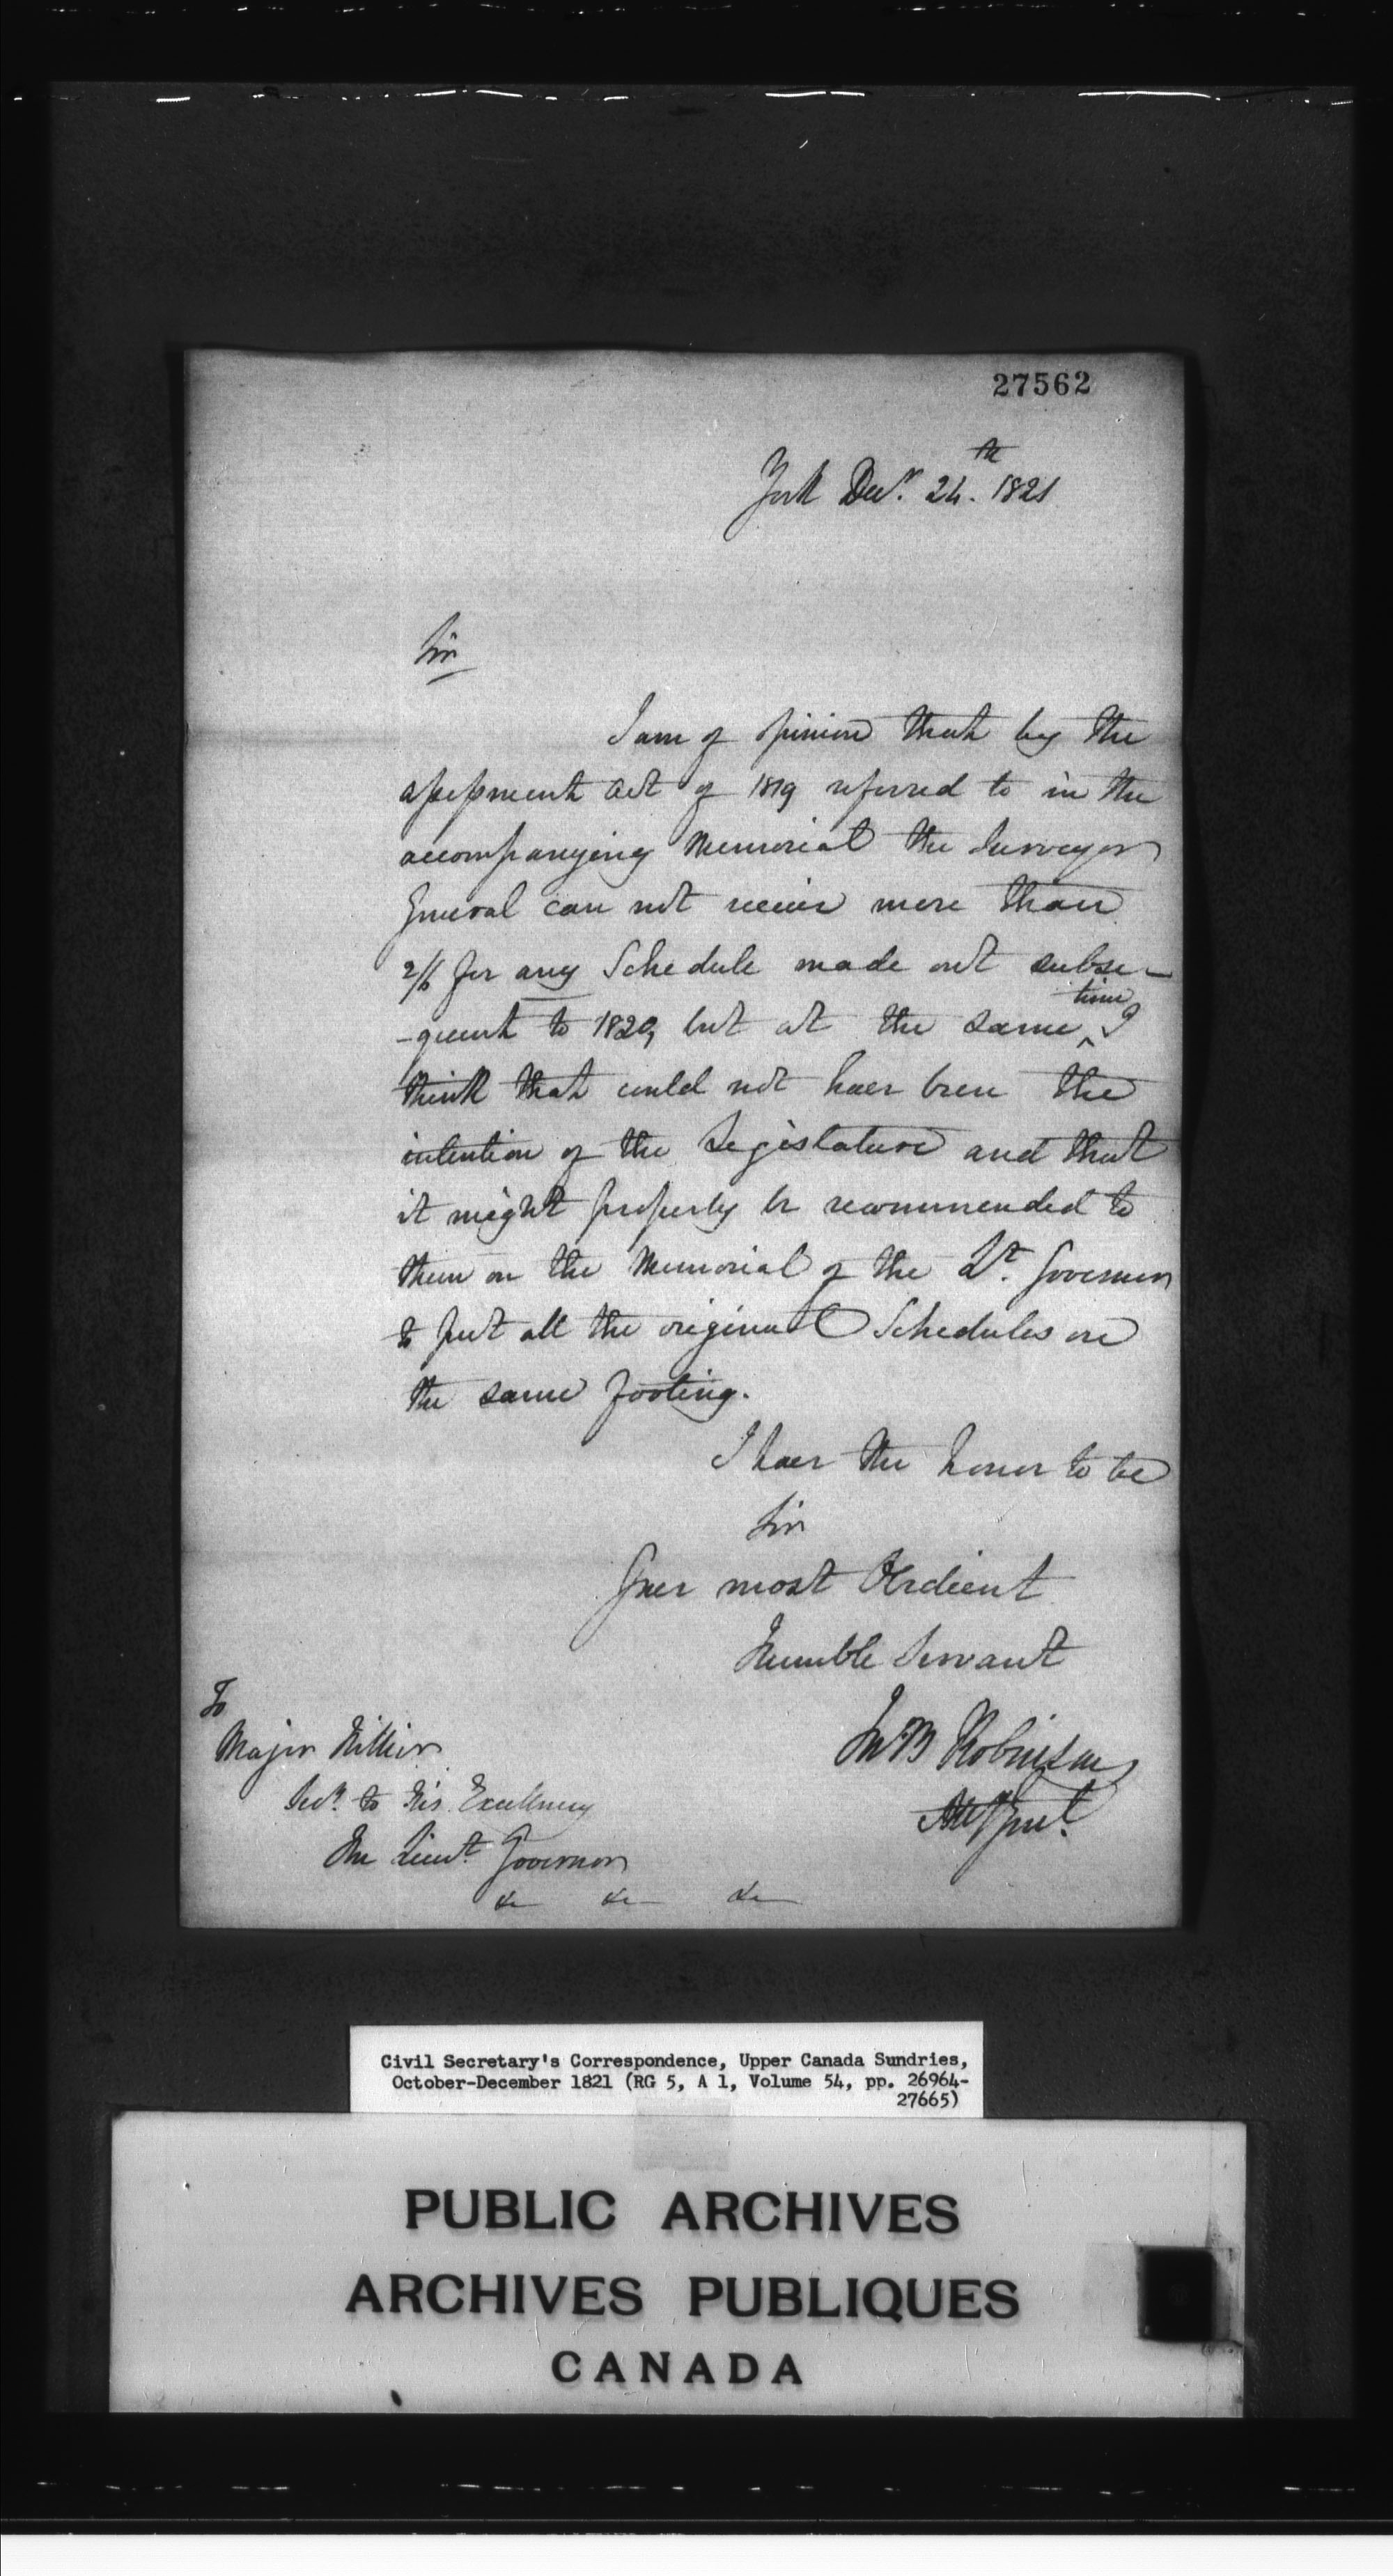 27562
York Decr. 24th. 1821
Sir
I am of opinion that by the
assessment act of 1819 referred to in the
accompanying Memorial the Surveyor
General can not receive more than
2/6 for any Schedule made out subse-
-quent to 1820, but at the same ^time I
think that could not have been the
intention of the Legislature and that
it might properly be recommended to
them on the Memorial of the Lt. Governor
to put all the original Schedules on
the same footing.
I have the honor to be
Sir
Your most Obedient
Humble Servant
Jno B Robinson
Atty Genl.
To
Major Hillier
Secy. to His Excellency
The Lieut. Governor
&c &c &c
Civil Secretary's Correspondence, Upper Canada Sundries,
October-December 1821 (RG 5, A 1, Volume 54, pp. 26964-
27665)
PUBLIC ARCHIVES
ARCHIVES PUBLIQUES
CANADA